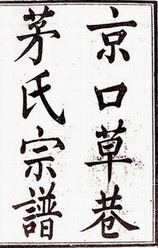 京口草巷
茅氏宗譜